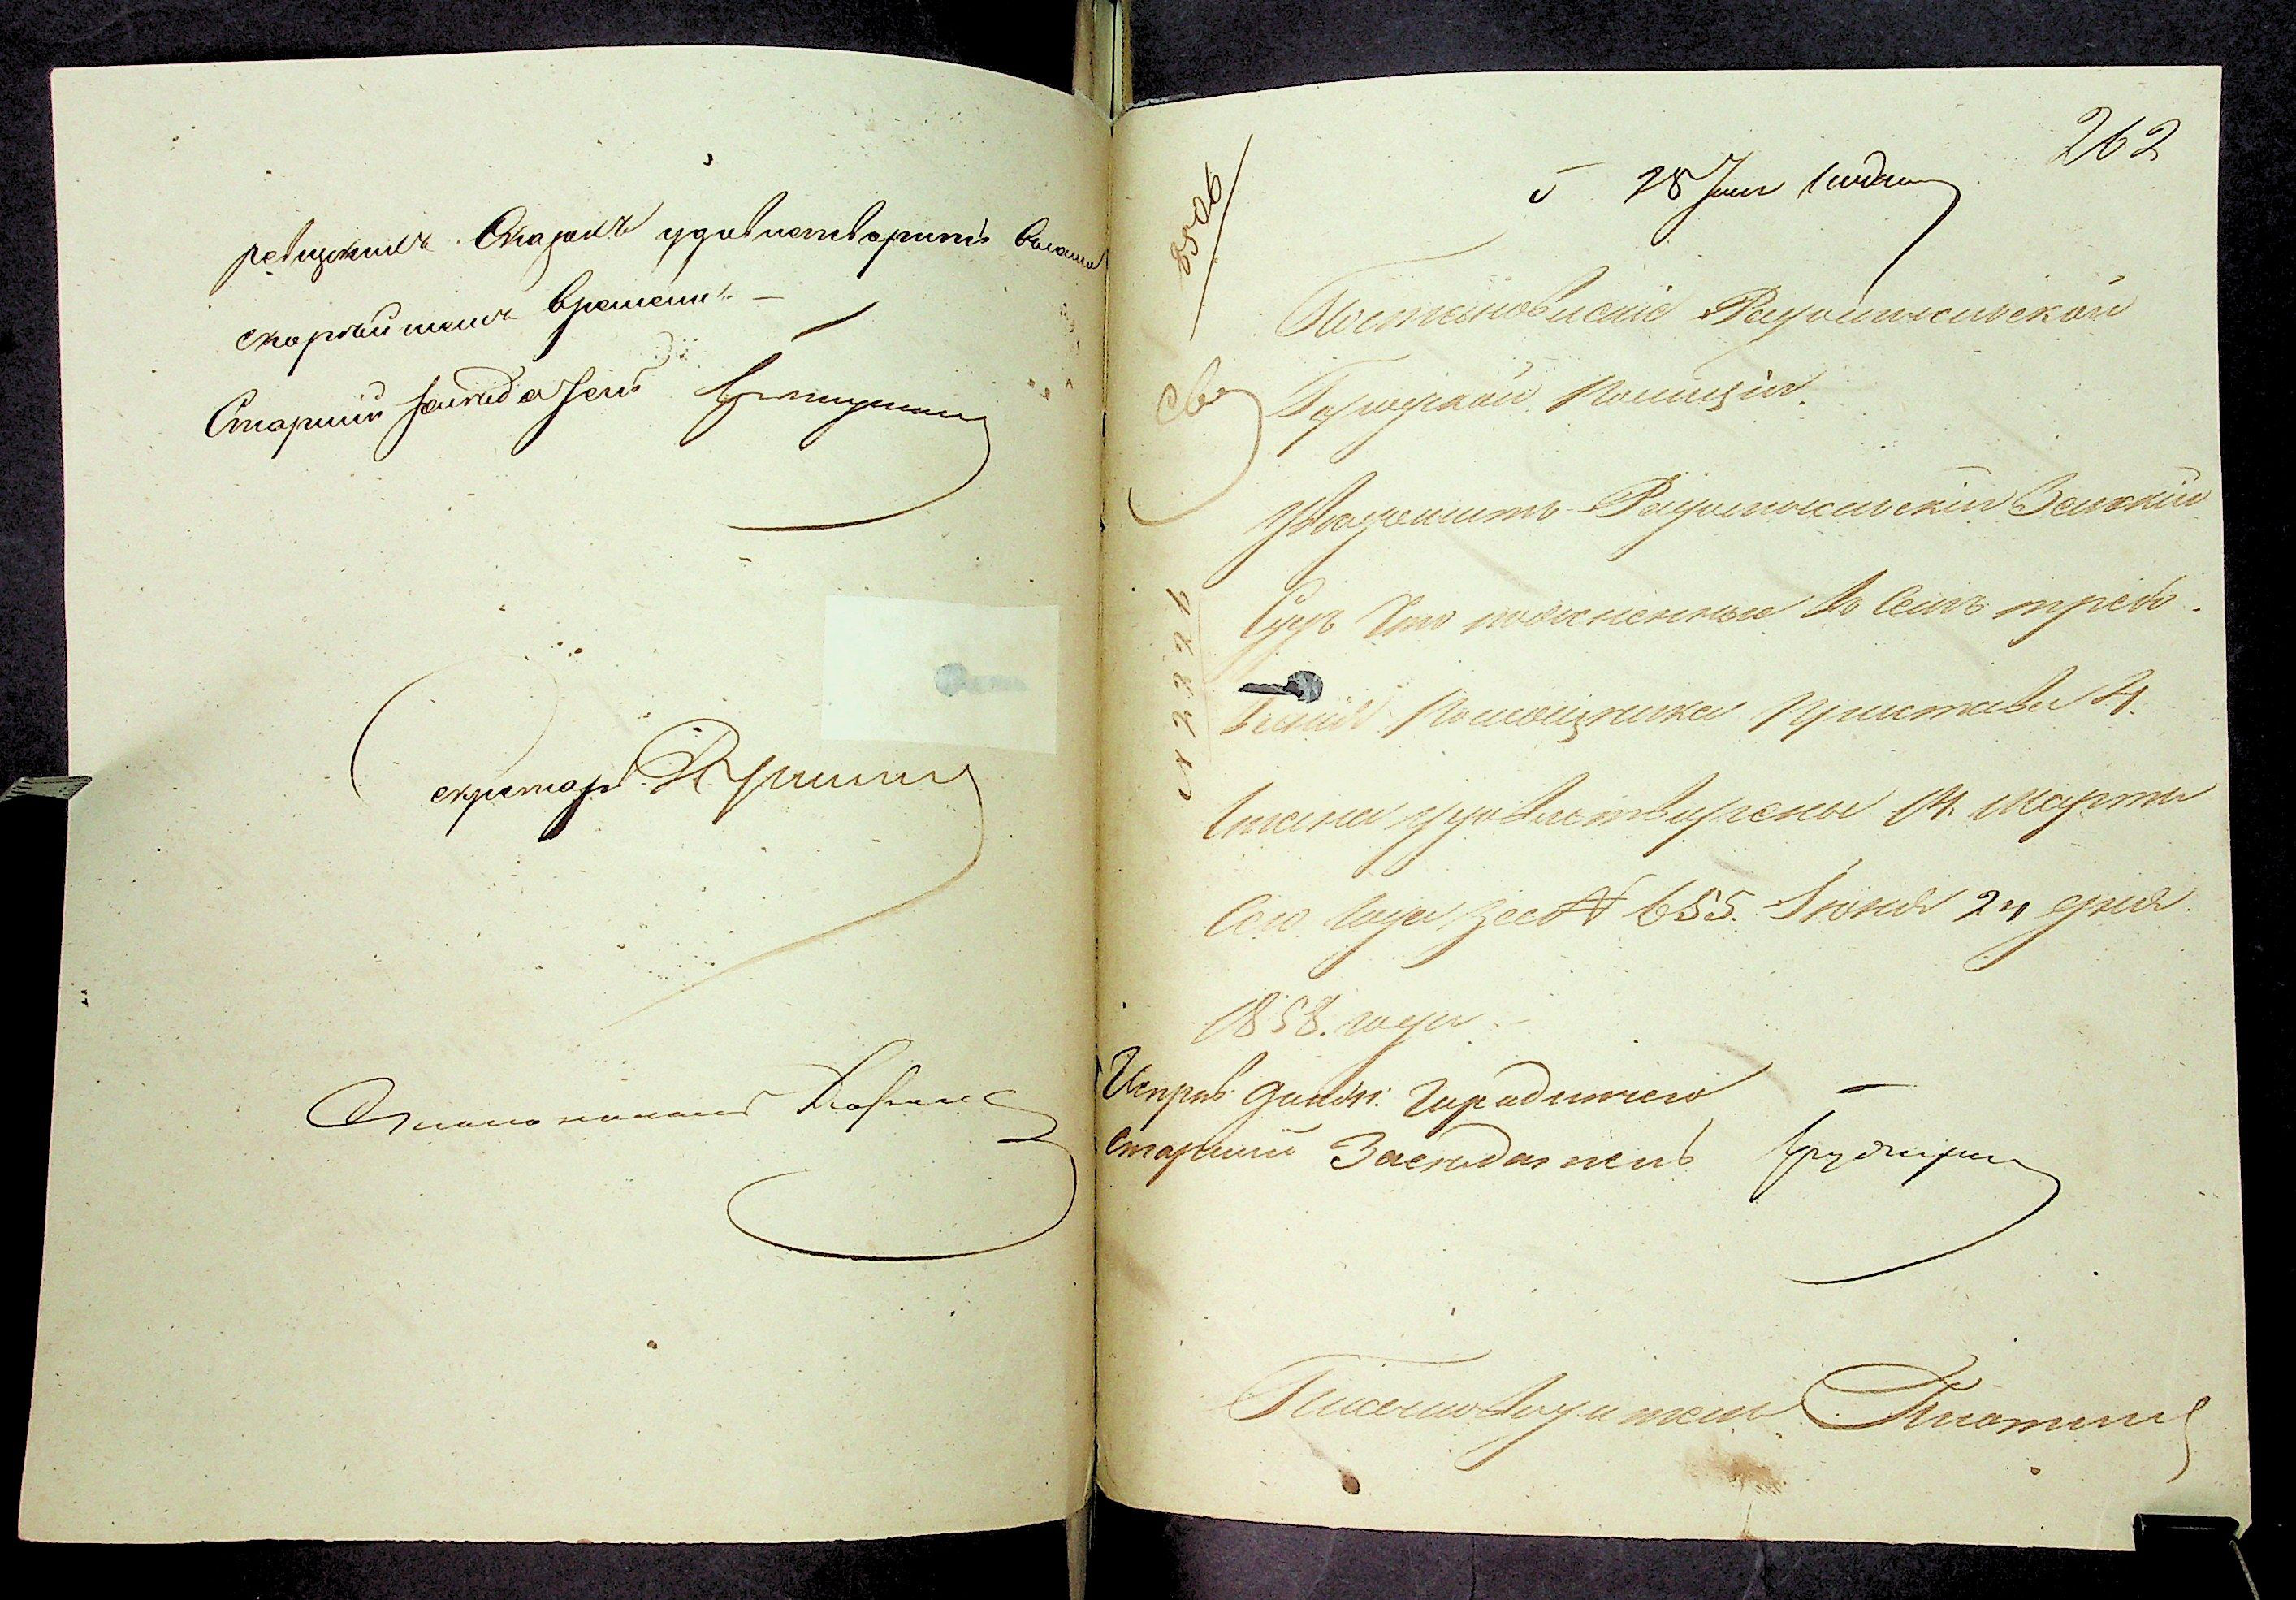 ревизскихъ Сказокъ удовлетворить въ самом
скорѣйшемъ времени. —
Старшій Засѣдатель
секретарь
Столоначальникъ
262
28 Іюня
8506
Постановленіе Радомысльской
Городской Полиціи.
Увѣдомить Радомысльскій Земскій
Судъ что поясненныя въ семъ требо-
ванія Помощника Пристава 4.
Стана удовлетворены 14 марта
сего года за № 655. Іюня 24 дня
1858. года. —
№ 2221
Исправ. должн. Городничего
старшій Засѣдатель
Письмоводитель